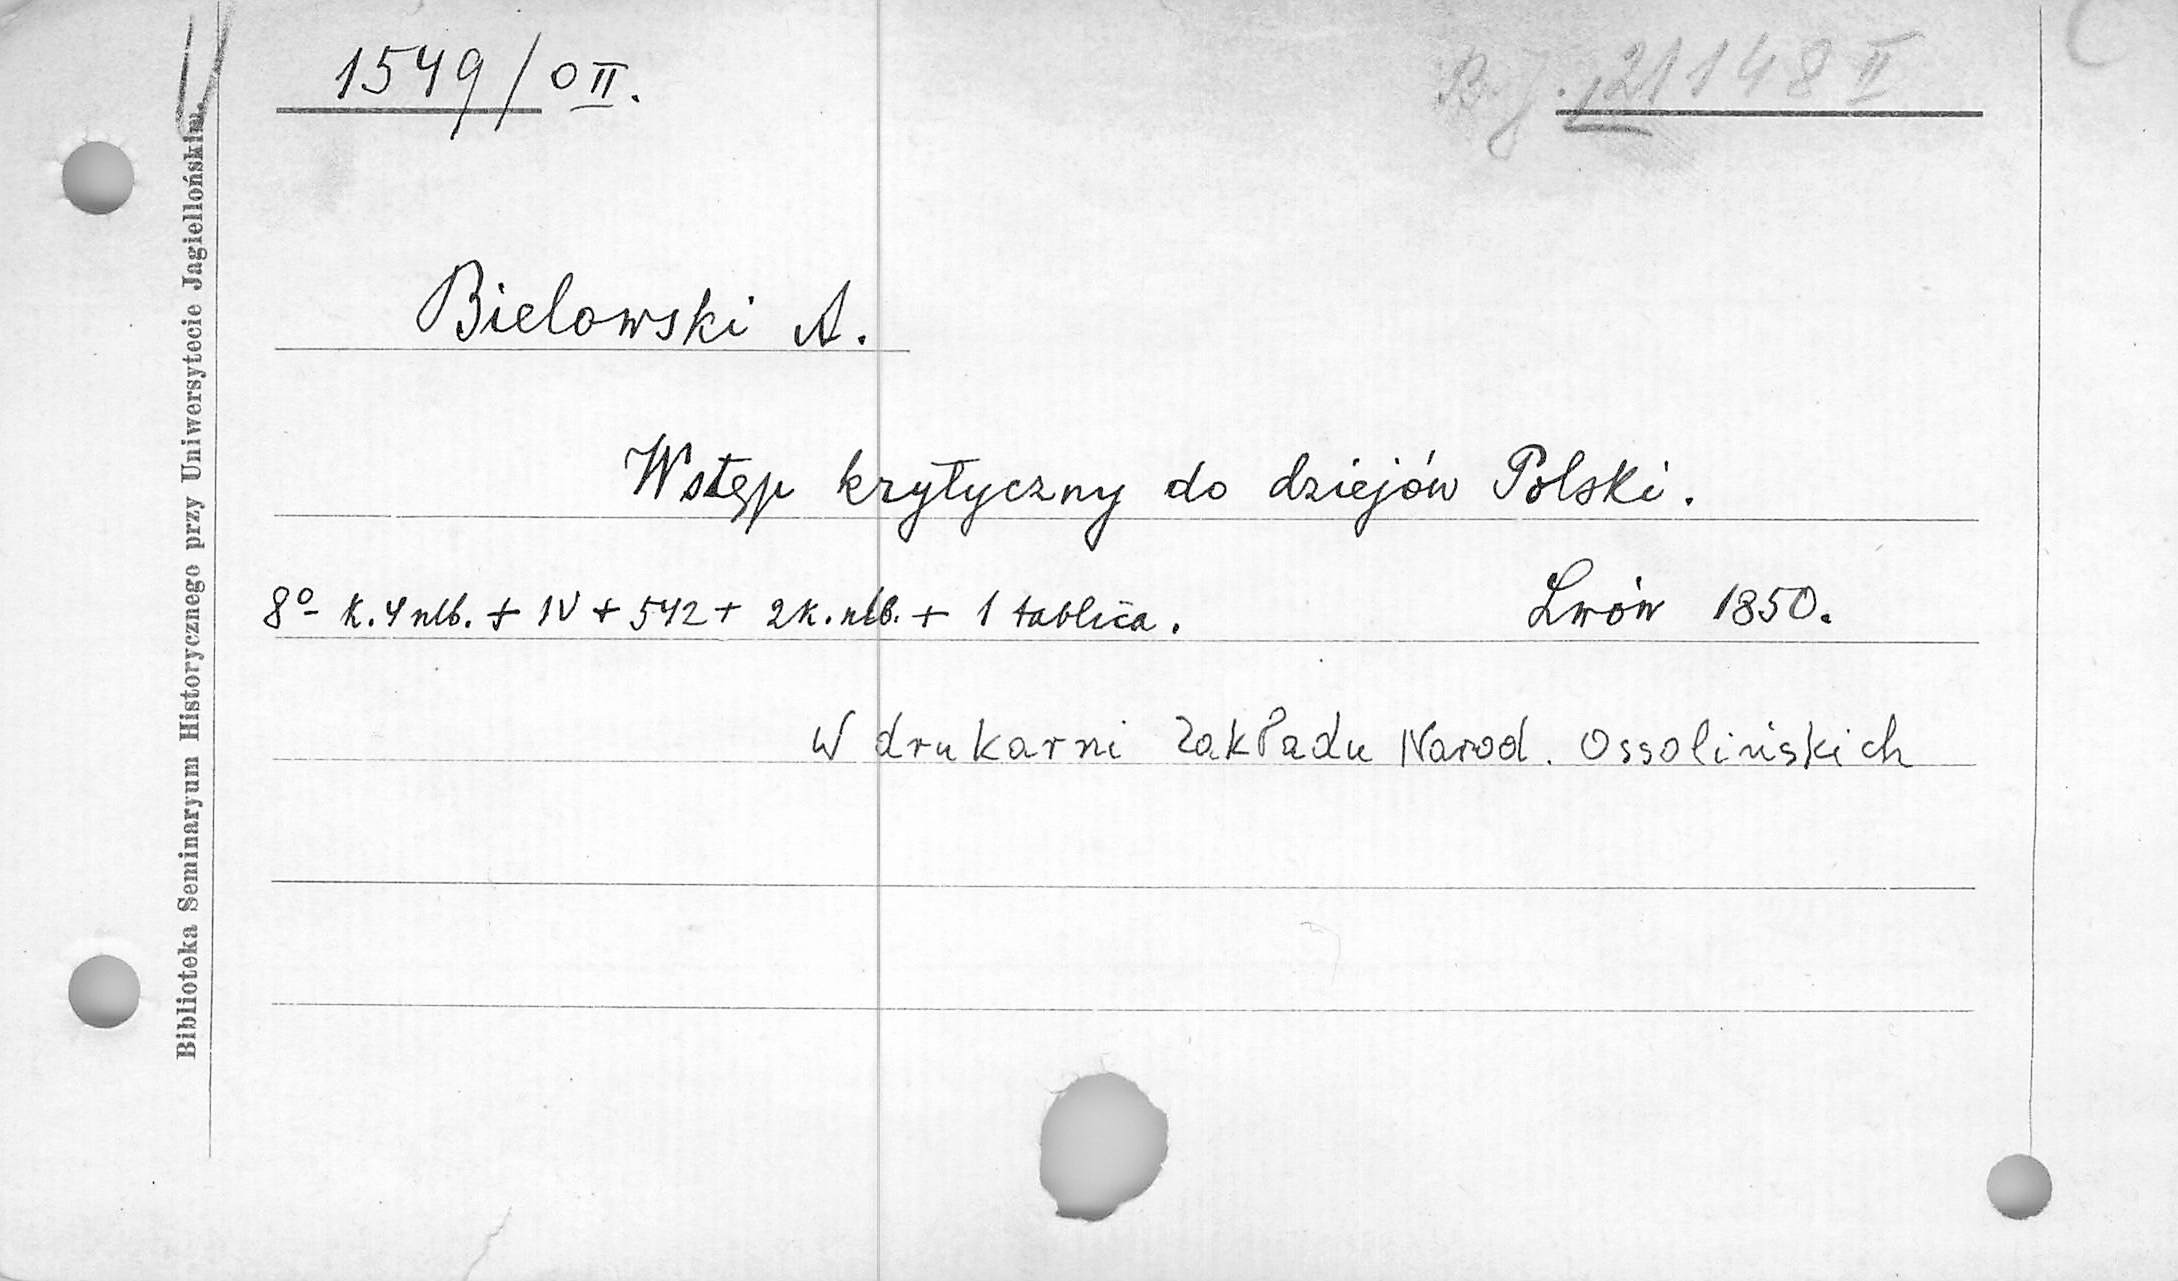 1549/OII.
B.J. 21148 II
Bielowski A.
Wstęp krytyczny do dziejów Polski.
8º K. 4 nlb. + IV + 542 + 2 k. nlb. + 1 tablica. Lwów 1850.
W drukarni Zakładu Narod. Ossolińskich
Biblioteka Seminaryum Historycznego przy Uniwersytecie Jagiellońskim.